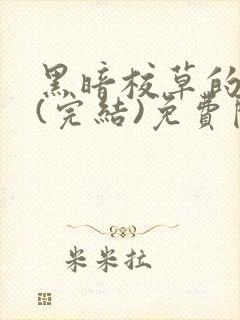 黑暗校草的
(完結)免費
米米拉